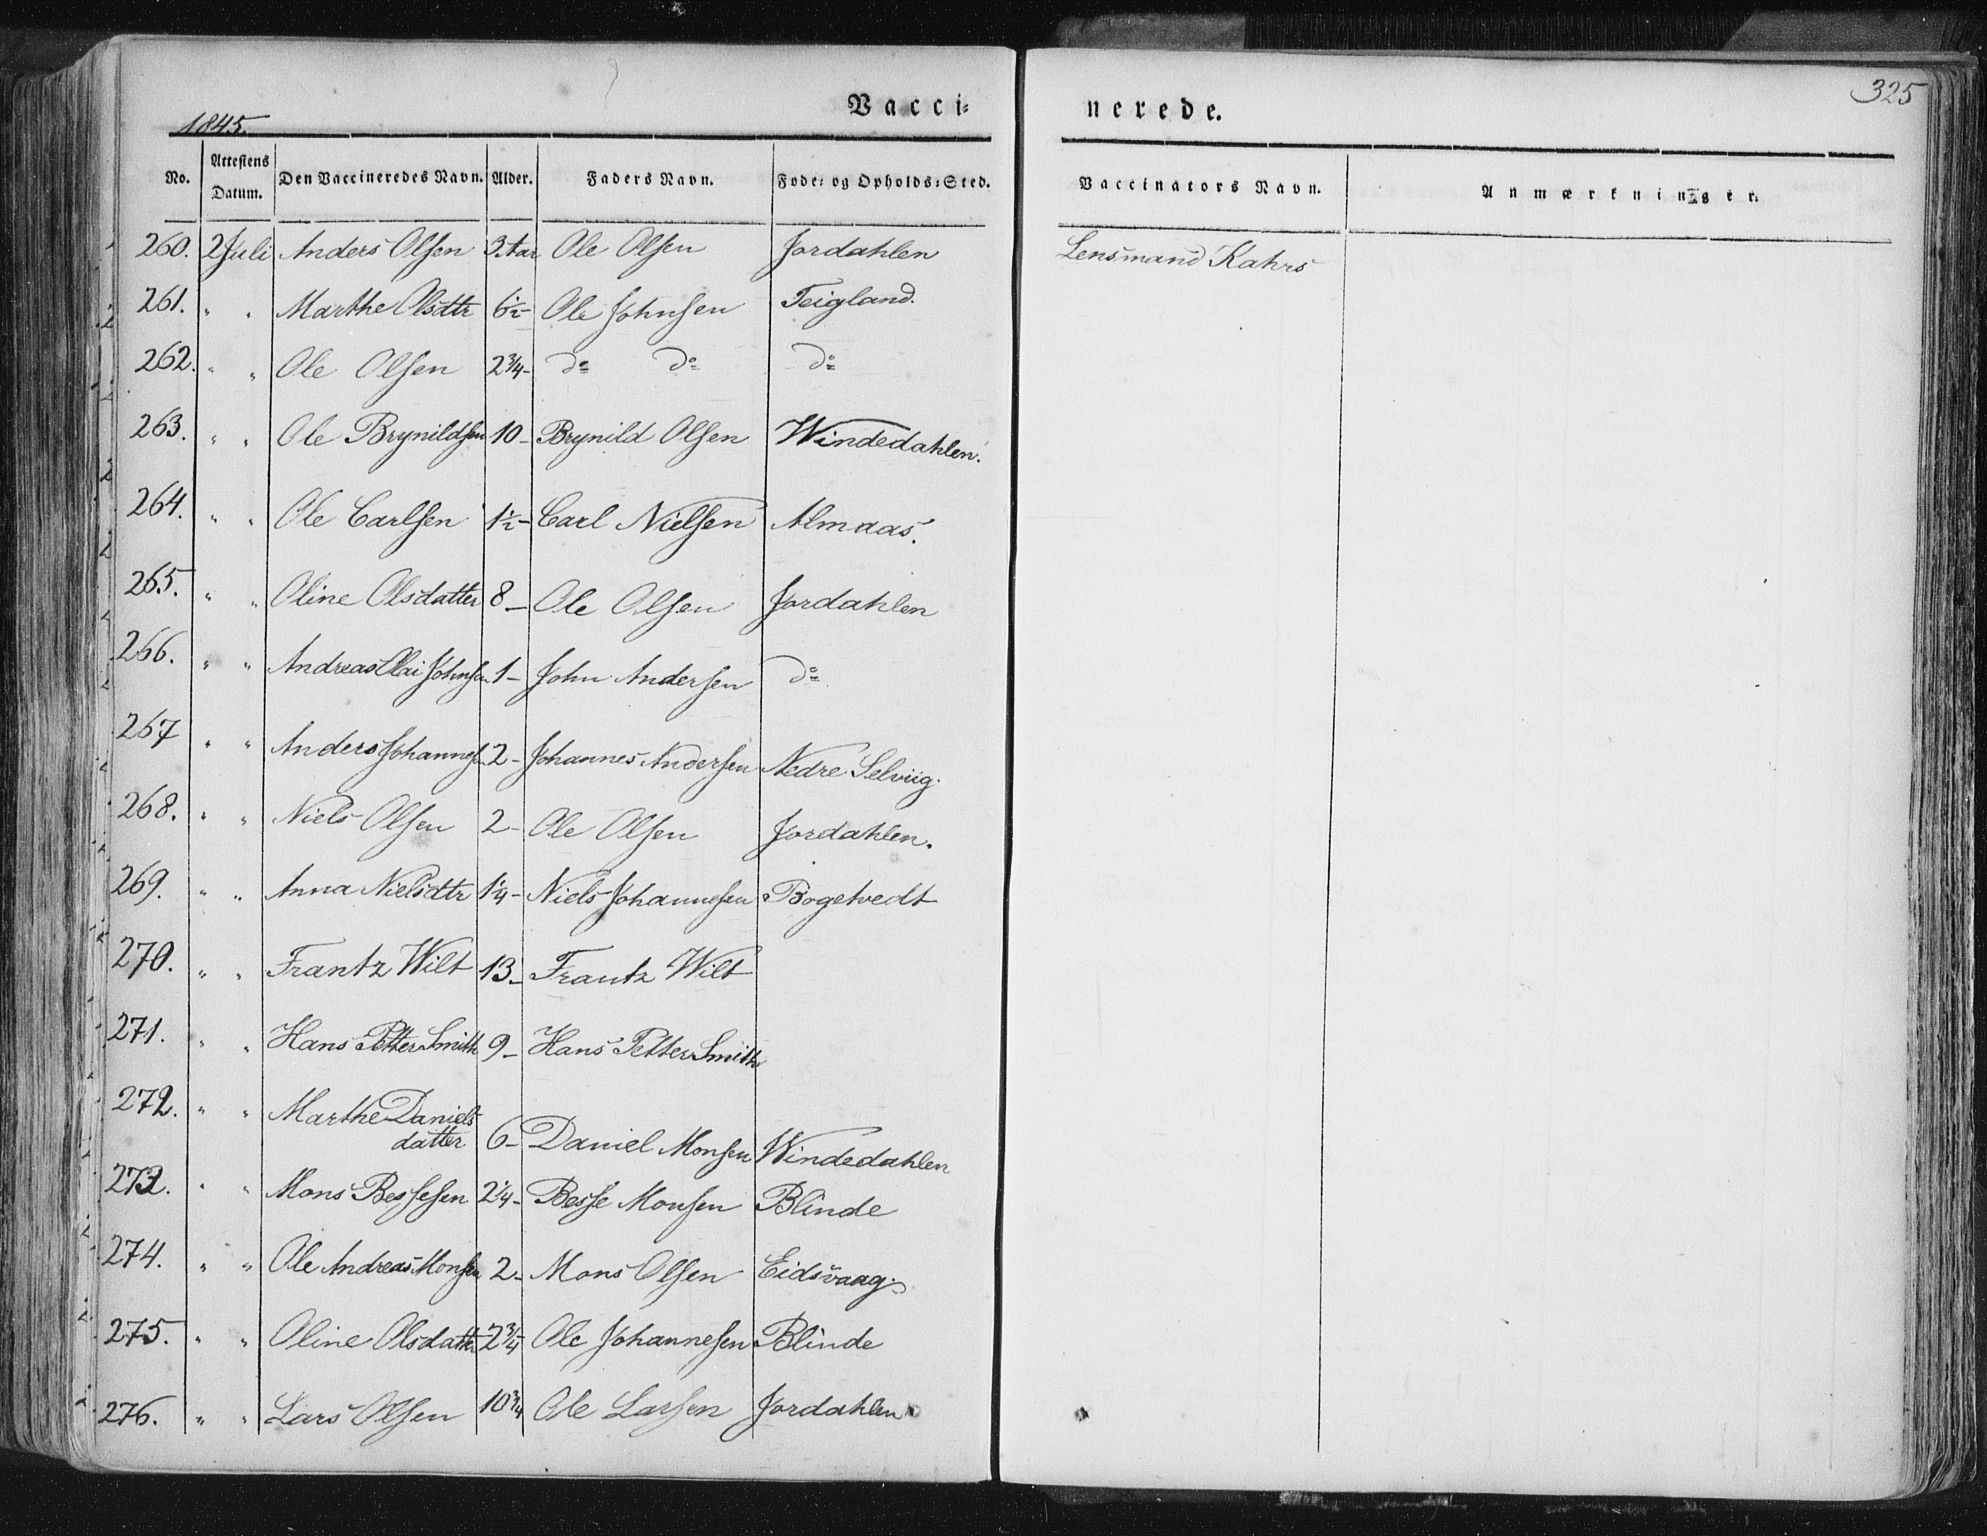 325
Vacci=
nerede.
1845.
No. Attestens Datum. Den Vaccineredes Navn. Alder. Faders Navn. Føde= og Opholds=Sted. Vaccinators Navn. Anmærkninger.
260. 2 Juli Anders Olsen 3 Aar Ole Olsen Jordahlen Lensmand Kahrs
261. " " Marthe Olsdtr 6½ - Ole Johnsen Teigland.
262. " " Ole Olsen 2¾ - do do do
263. " " Ole Brynildsen 10 - Brynild Olsen Windedahlen.
264. " " Ole Carlsen 1½ - Carl Nielsen Almaas.
265. " " Oline Olsdatter 8 - Ole Olsen Jordahlen
266. " " Andreas Olai Johnsen 1 - John Andersen do
267 " " Anders Johannes 2 - Johannes Andersen Nedre Selviig.
268. " " Niels Olsen 2 - Ole Olsen Jordahlen.
269. " " Anna Nielsdtr 1¼ - Niels Johannesen Bogetvedt
270. " " Frantz Wilt 13 - Frantz Wilt
271. " " Hans Petter Smith 9 - Hans Petter Smith
272. " " Marthe Daniels
datter 6 - Daniel Monsen Windedahlen
273. " " Mons Bessesen 2¼ - Besse Monsen Blinde
274. " " Ole Andreas Monsen 2 - Mons Olsen Eidsvaag.
275. " " Oline Olsdatter 2¾ Ole Johannesen Blinde
276. " " Lars Olsen 10¾ Ole Larsen Jordahlen